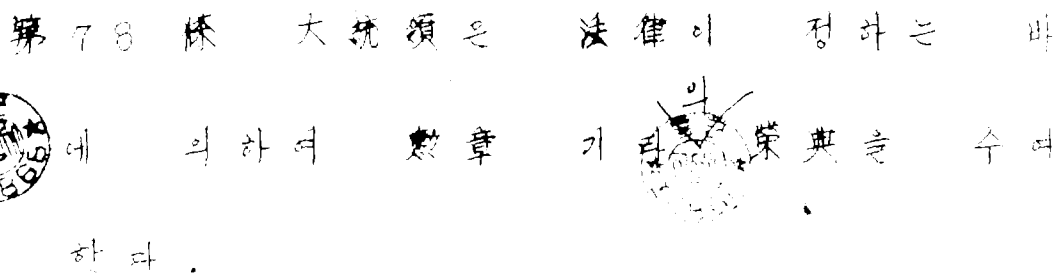 第78條 大統領은 法律이 정하는 바
에 의하여 勲章 기타의 榮典을 수여
한다.